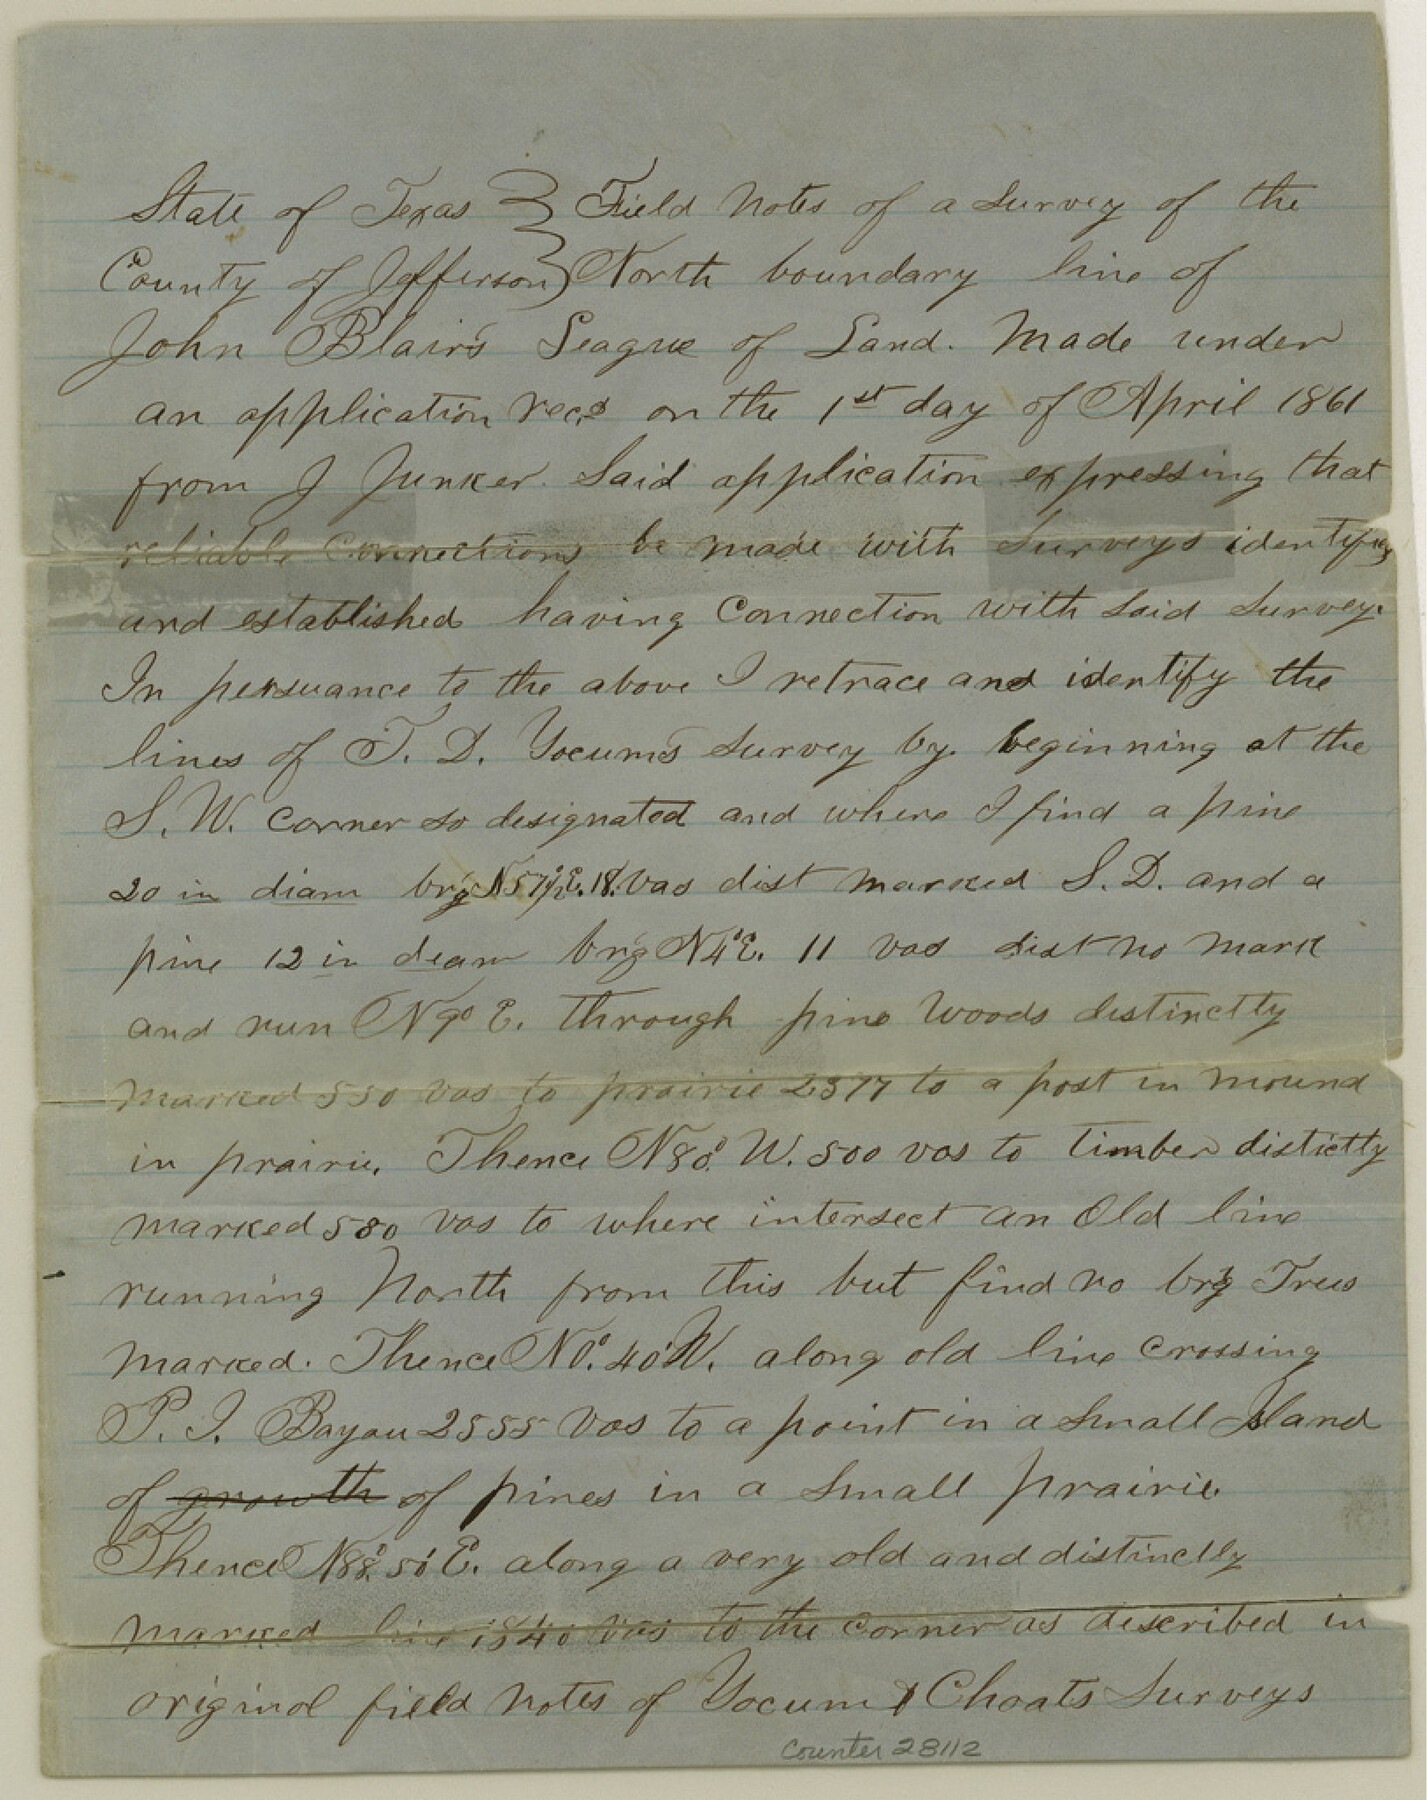 State of Texas } Field Notes of a Survey of the
County of Jefferson } North boundary line of
John Blair's League of Land. Made under
an application recd on the 1st day of April 1861
from J Junker. Said application expressing that
reliable connections be made with Surveys identify
and established having connection with said Survey.
In persuance to the above I retrace and identify the
lines of T. D. Yocums Survey by beginning at the
S. W. corner so designated and where I find a pine
20 in diam brg N 57½° E. 18. vas dist marked S. D. and a
pine 12 in deam brg N 4° E. 11 vas dist no mark
and run N 9° E. through pine woods distinctly
marked 550 vas to prairie 2577 to a post in mound
in prairie. Thence N 80° W. 500 vas to timber distictly
marked 580 vas to where intersect an Old line
running North from this but find no brg Trees
marked. Thence N 0° 40' W. along old line crossing
P. I. Bayou 2555 vas to a point in a small Island
of growth of pines in a small prairie.
Thence N 88° 50' E. along a very old and distinctly
marked line 1840 vas to the corner as described in
original field notes of Yocum & Choats Surveys
Counter 28112